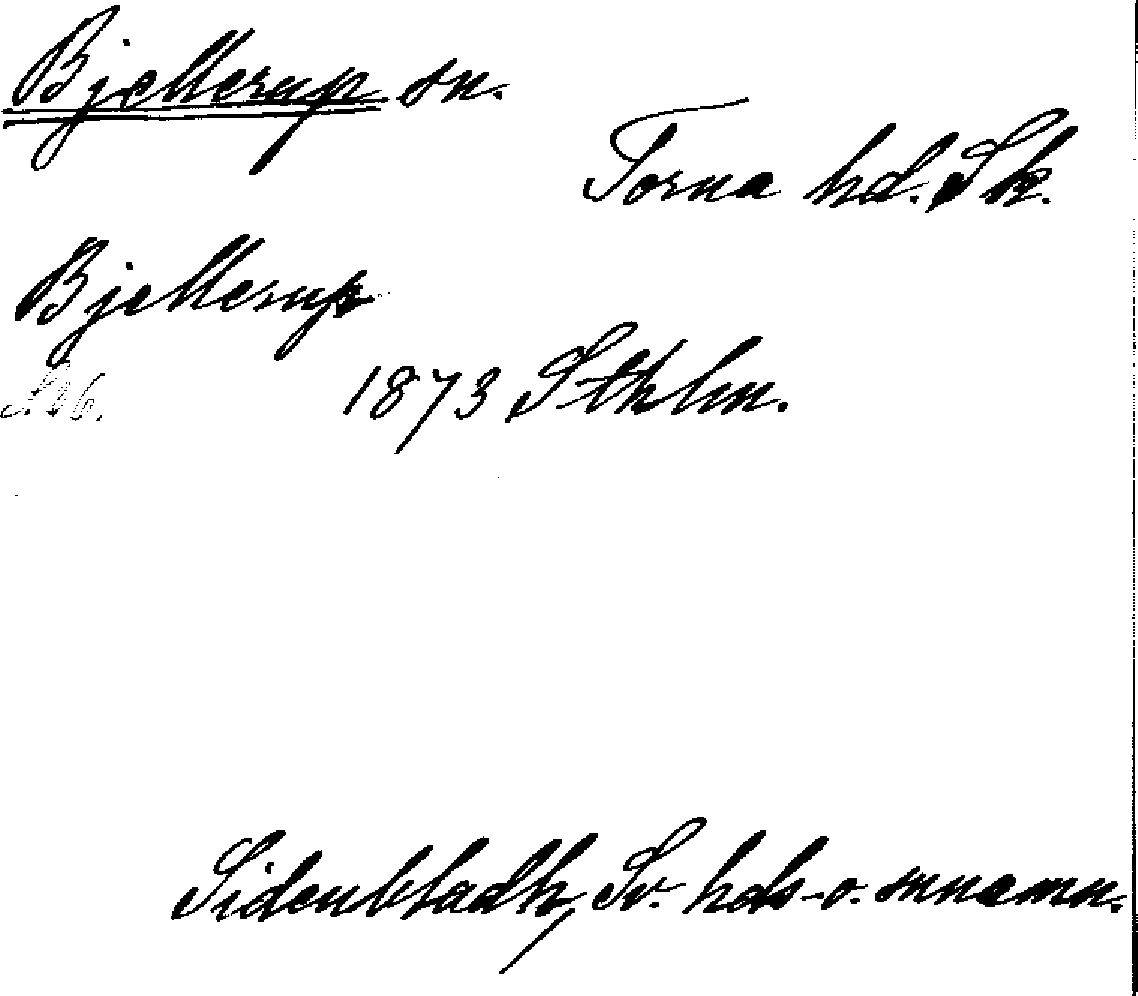 Bjellerup sn.
Torna hd. Sk.
Bjellerup
1873 Sthlm.
Sidenbladh, Sv. hds- o. snnamn.